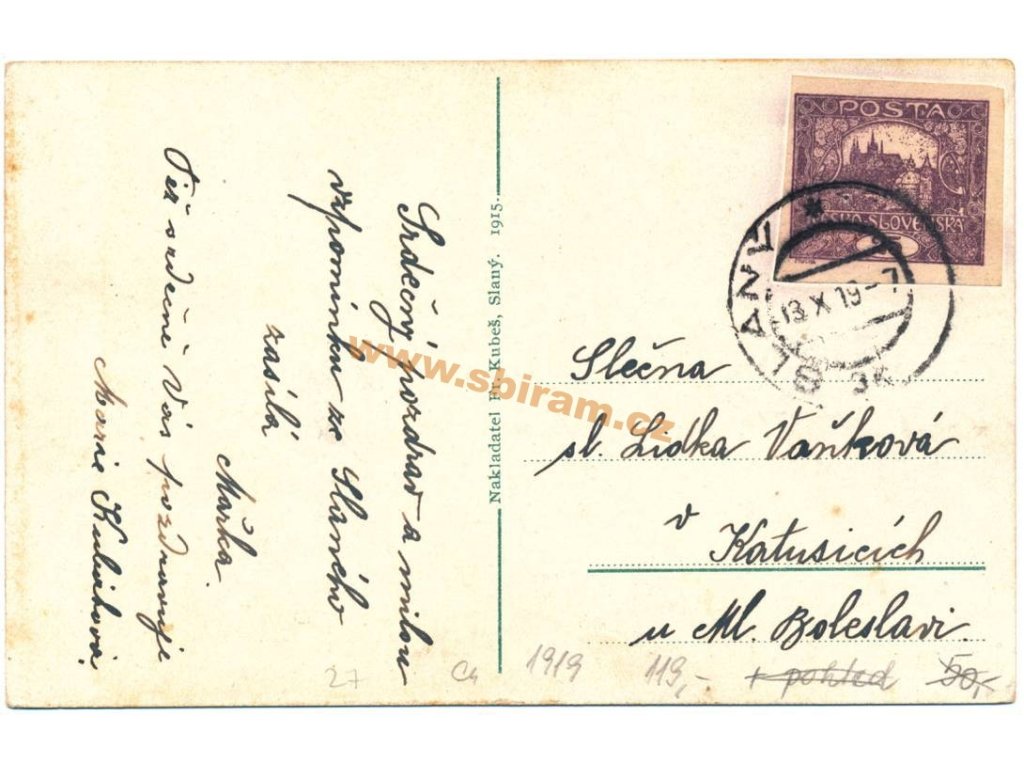 Srdečný pozdrav a milou
vzpomínku ze Slaného
zasílá
Mařka.
Též srdečně Vás pozdravuje
Marie
Nakladatel Fr. Kubeš, Slaný. 1915.
POSTA
ČESKO-SLOVENSKÁ
SLANÝ
13 X 19-7
Slečna
sl. Lidka Vaňková
v
Katusicích
u Ml. Boleslavi.
www.sbiram.cz
27
1919
119,-
+ pohled
50,-